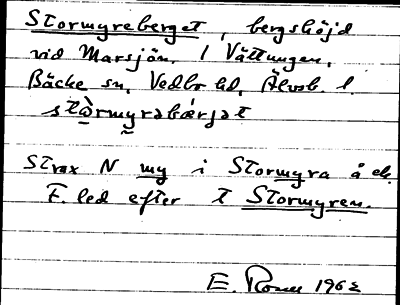 Stormyreberget, bergshöjd
vid Marsjön. 1 Vättungen,
Bäcke sn, Vedbo hd, Älvsb. l.
stòrmyrəbærjət
Strax N my i Stormyra å ek.
F. led efter t Stormyren.
E. 1962